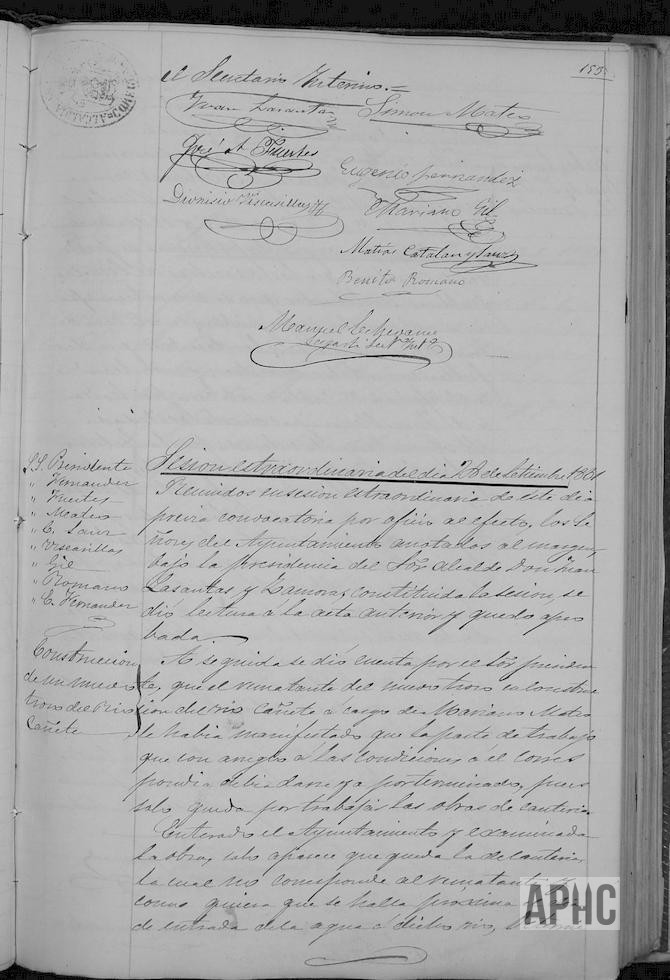 155
el Secretario Interino.=
Juan Lasanta
Simon Mateo
José A. Fuertes
Eugenio Fernandez
Dionisio Viscasillas
Mariano Gil
Matías Catalan y Sanz
Benito Romano
Manuel
Sesion estraordinaria del dia 28 de Setiembre 1881
S.S. Presidente
" Fernandez
" Fuertes
" Mateo
" C. Sanz
" Viscasillas
" Gil
" Romano
" E. Fernandez
Reunidos en sesion estraordinaria de este dia
previa convocatoria por oficio al efecto, los Se
ñores del Ayuntamiento anotados al margen,
bajo la presidencia del Sor. Alcalde Don Juan
Lasantas y Zamora, constituida la sesion, se
dió lectura á la acta anterior y quedó apro
bada.
Construccion
de un nuevo
trozo del Rio
Cañete
A seguida se dió cuenta por el Sor. presiden
te, que el rematante del nuevo trozo en construc
cion del rio Cañete á cargo de Mariano Mateo
le habia manifestado que la parte de trabajo
que con arreglo á las condiciones á el corres
pondia debia darse ya por terminado, pues
solo queda por trabajar las obras de canteria.
Enterado el Ayuntamiento y examinada
la obra, solo aparece que queda la de canteria,
la cual no corresponde al rematante y
como quiera que se halla proxima
de entrada de la agua á dicho rio,
APHC